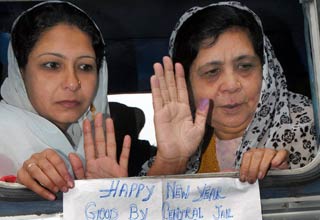 HAPPY NEW YEAR
GOOD BY CENTRAL JAIL